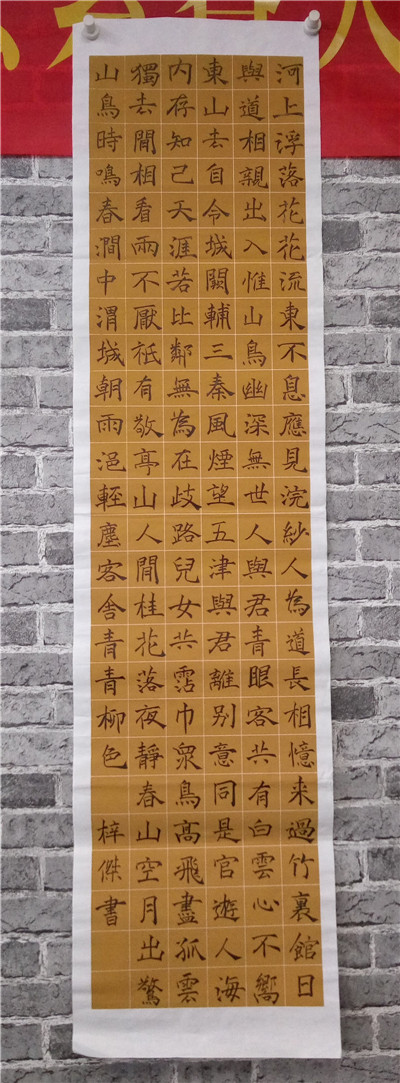 河上浮落花花流東不息應見浣紗人為道長相憶来過竹裏館日
與道相親出入惟山鳥幽深無世人與君青眼客共有白雲心不嚮
東山去自令城闕輔三秦風煙望五津與君離别意同是官遊人海
内存知己天涯若比鄰無為在歧路兒女共霑巾衆鳥高飛盡孤雲
獨去閒相看兩不厭祗有敬亭山人閒桂花落夜靜春山空月出驚
山鳥時鳴春澗中渭城朝雨浥輕塵客舍青青柳色
梓傑書